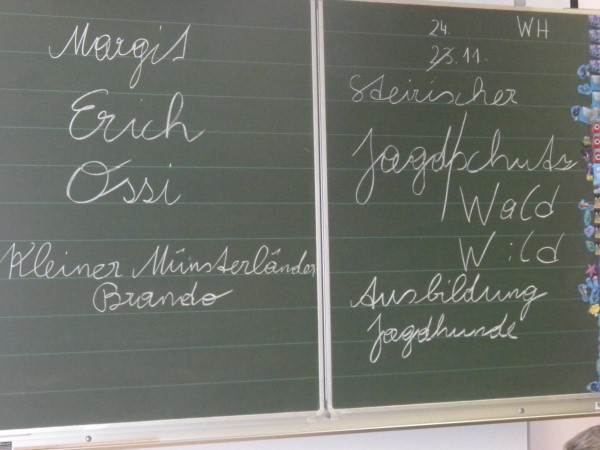 Margit
Erich
Ossi
Kleiner Münsterländer
Brando
24. WH
23.11.
Steirischer
Jagdschutz
Wald
Wild
Ausbildung
Jagdhunde